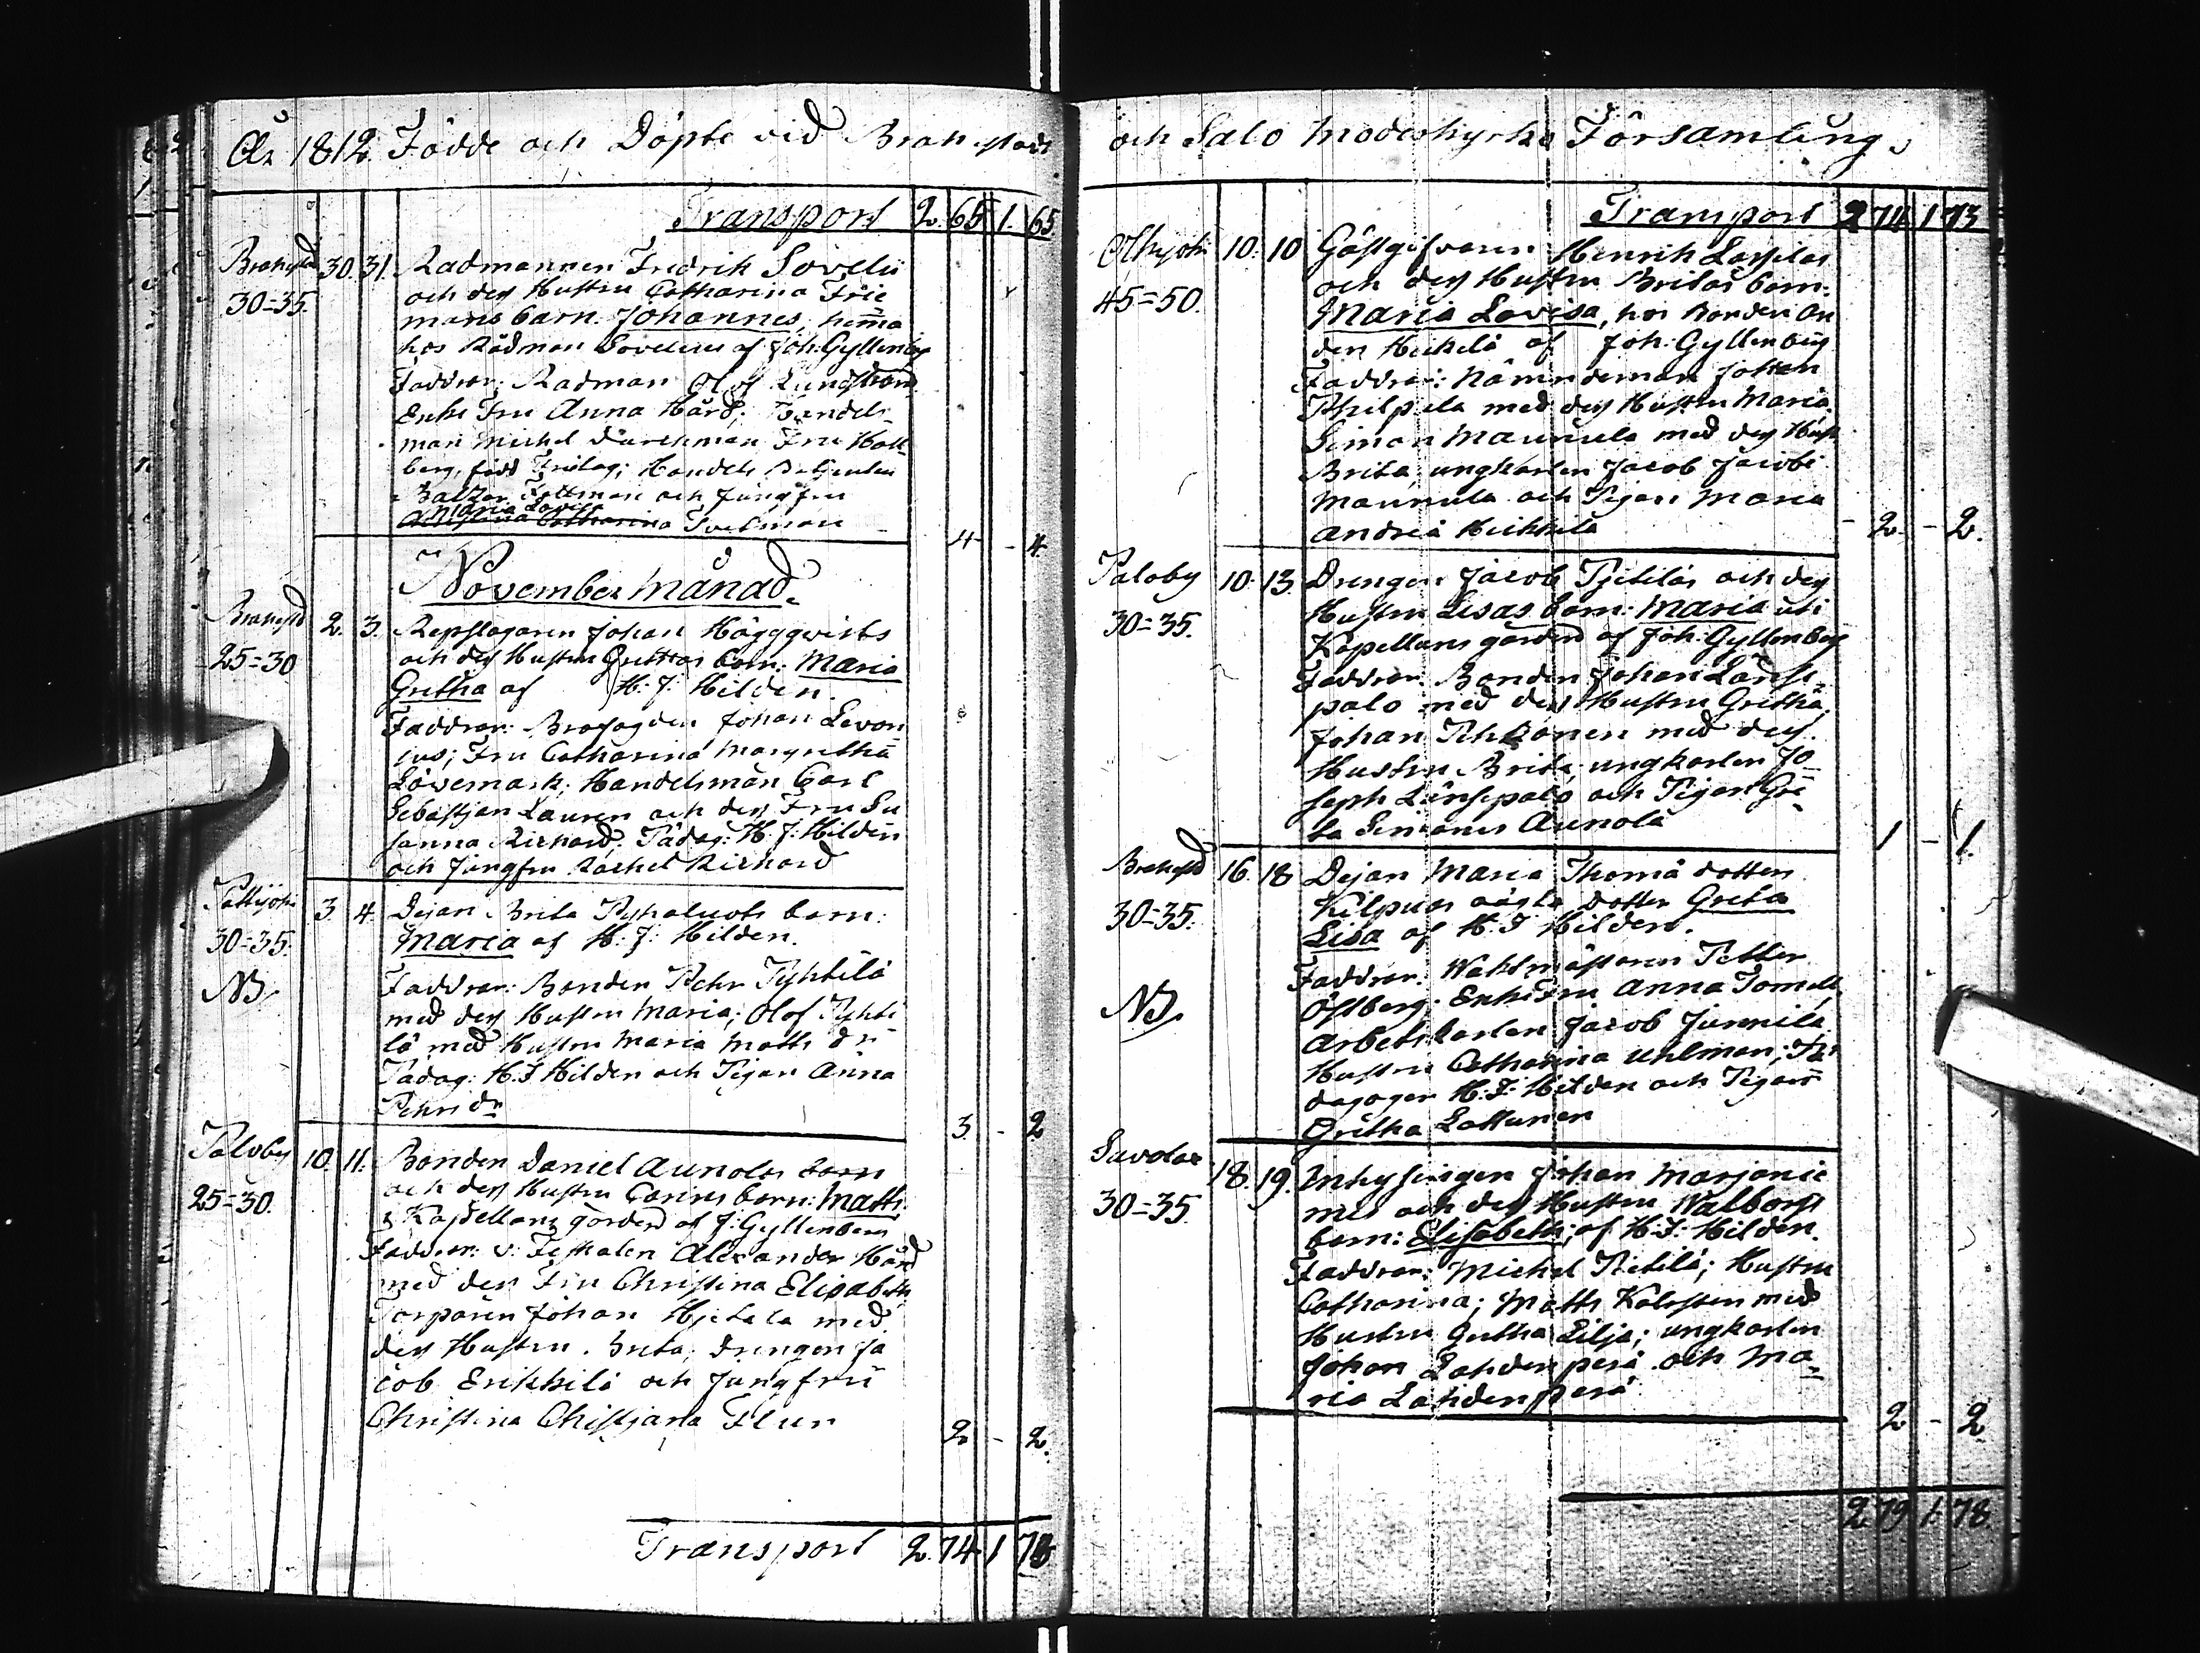 År 1812. Födde och Döpte vid Brahestads
Transport 2 65 1. 65
Brahestad 30. 31. Radmannen Fredrik Sovelii
30=35. och dess Hustru Catharina Frie
mans barn. Johannes, hemma
hos Rådman Sovelius af Joh: Gyllenberg
Faddrar: Radman Olof Lundström
Enke Fru Anna Hård; Handels
man Michel Durchman Fru
berg, född Freitag; Handels Betjenten
Baltzar och Jungfru
Maria Lovisa
Christina Catharina
4 - 4
November Månad.
Brahestad 2. 3. Repslagaren Johan Häggqvists
25=30 och dess Hustru Grethas barn: Maria
Gretha af H: J: Hilden.
Faddrar: Brofogden Johan Levon
ius; Fru Catharina Margretha
Lövemark; Handelsman Carl
Sebastjan Lauren och dess Fru Su
sanna Richard; Pädag: H: J: Hilden
och Jungfru Rachel Richard
Pattijoki 3. 4. Dejan Brita barn:
30=35. Maria af H: J: Hilden.
NB. Faddrar: Bonden Pehr Tyhtilä
med dess Hustru Maria; Olof Tyhti
lä med Hustru Maria Matts dr
Pädag: H. J Hilden och Pigan Anna
Pehrs dr
3. - 2
Paloby 10. 11. Bonden Daniel Aunolas barn
25=30. och dess Hustru barn: Matts
i Kapellans gården af J: Gyllenberg
Faddrar: v: Fiskalen Alexander Hård
med dess Fru Christina Elisabeth
Torparen Johan Hietala med
dess Hustru Brita; Drengen Ja
cob Erikkilä och Jungfru
Christina Christjana Flur
2 - 2.
Transport 2. 74 1 73
och Salo Moderkyrko Församling.
Transport 2 74 1 73
Olkijoki 10. 10 Gästgifvaren Henrik Lassilas
45=50. och dess Hustru Britas barn:
Maria Lovisa, hos Bonden An
ders Heikilä af Joh: Gyllenberg
Faddrar: Nämndeman Johan
Philpula med dess Hustru Maria
Simon Maunula med dess Hust
Brita; ungkarlen Jacob Jacobi
Maunula och Pigan Maria
Andreæ Heikkilä
- 2. - 2.
Paloby 10. 13. Drengen Jacob Pietiläs och dess
30=35. Hustru Lisas barn: Maria uti
Kapellans gården af Joh: Gyllenberg
Faddrar. Bonden Johan Länsi
palo med dess Hustru Gretha;
Johan Pihkonen med dess
Hustru Brita; ungkarlen Jo
seph Länsipalo och Pigan Gre
ta Simons Aunola
1 - 1
Brahestad 16. 18. Dejan Maria Thomæ dotters
30=35. Kilpuas oägta dotter Greta
Lisa af H. J Hilden.
NB. Faddrar: Waktmästaren Petter
Östberg; Enke Fru Anna
Arbetskarlen Jacob Junnila
Hustru Catharina Uhlman; Pä
dagogen H: J: Hilden och Pigan
Gretha Lattunen
Savolax 18. 19. Inhysingen Johan Marjanie
30=35. mis och dess Hustru Walborgs
barn: Elisabeth; af H: J: Hilden.
Faddrar: Michel Pietilä; Hustru
Catharina; Matts med
Hustru Gretha Lilja; ungkarlen
Johan Lahdenperä och Ma
ria Lahdenperä
2 - 2
2 79 1. 78